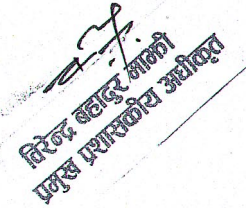 विरेन्द्र बहादुर मास्की
प्रमुख प्रशासकीय अधीकृत